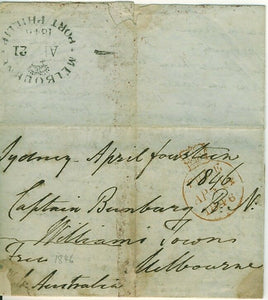 MELBOURNE
PORT PHILLIP
21
1846
Sydney April fourteen
1846
Captain Bunbury R. N.
Williams Town
Free 1846
Melbourne
Australia